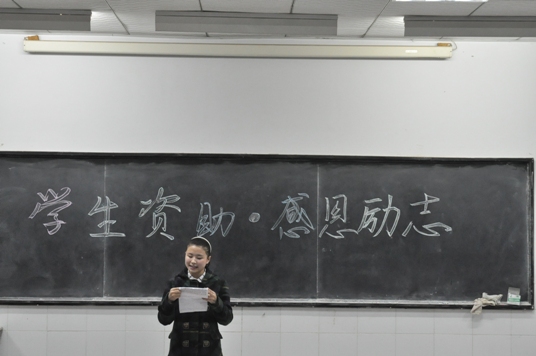 学生资助·感恩励志